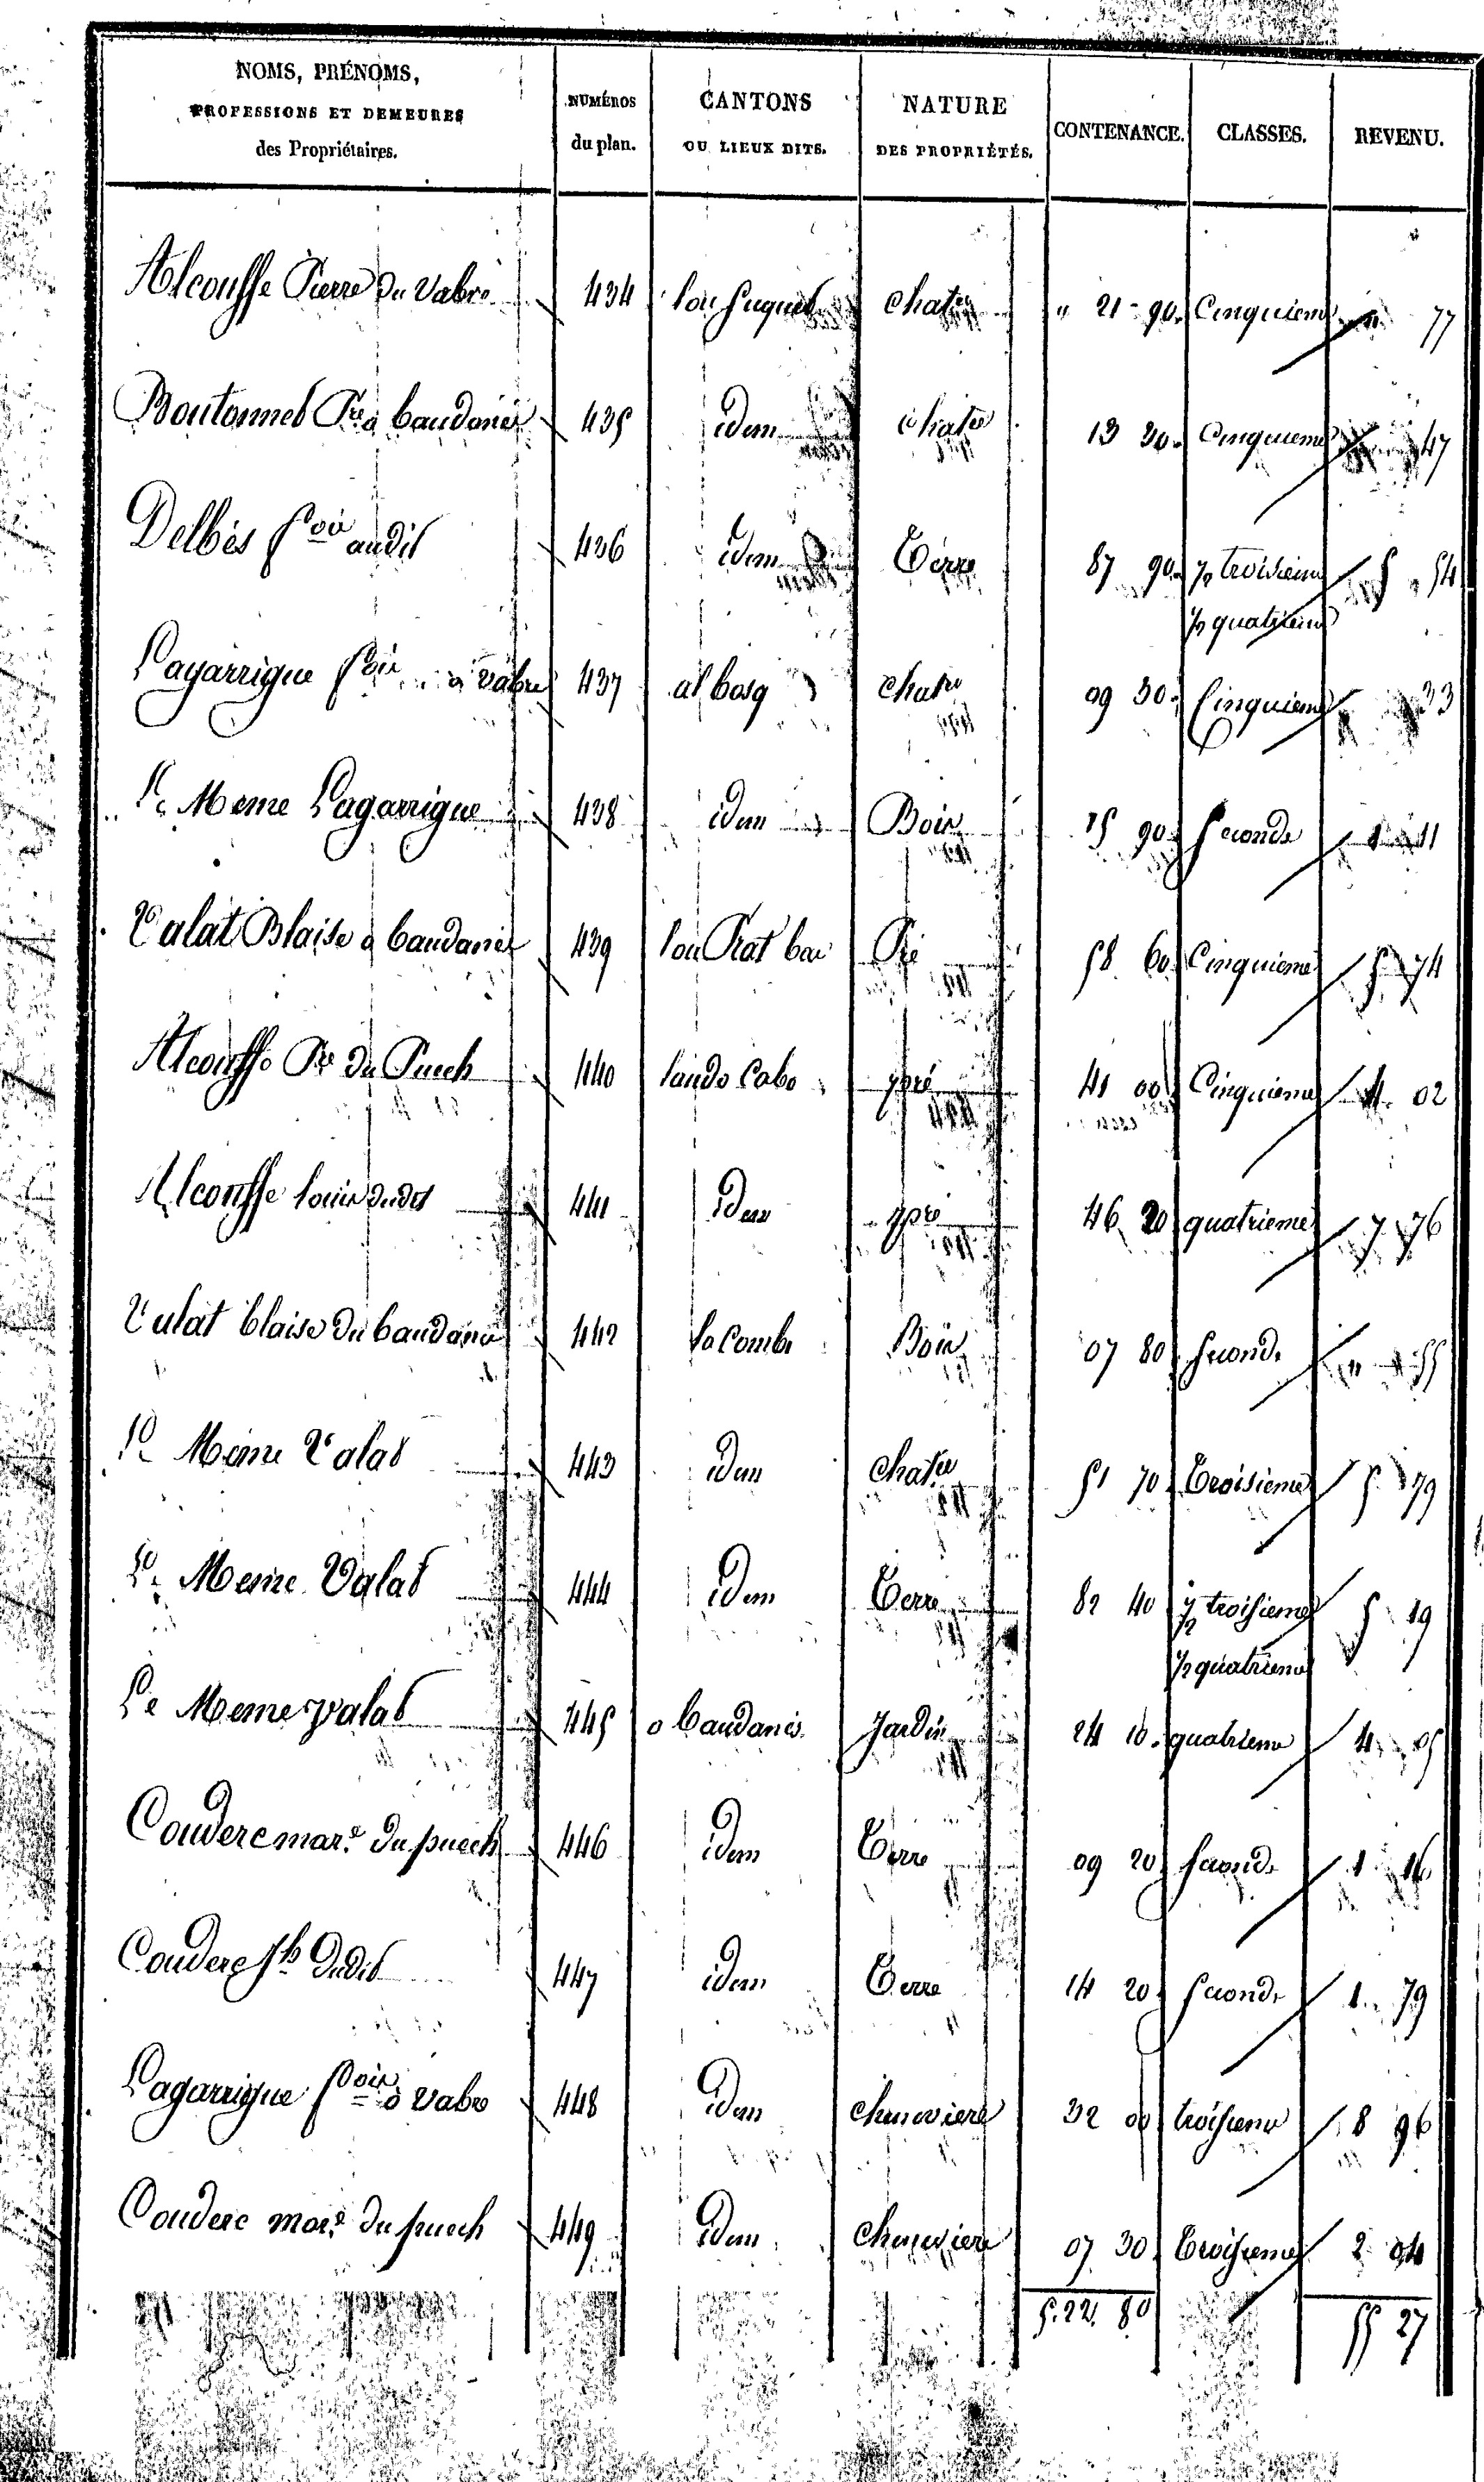 NOMS, PRÉNOMS, PROFESSIONS ET DEMEURES des Propriétaires. | NUMÉROS du plan. | CANTONS OU LIEUX DITS. | NATURE DES PROPRIÉTÉS. | CONTENANCE. | CLASSES. | REVENU.
Alcouffe Pierre du Vabre 434 lou Puquet chatre " 21 90. Cinquieme " 77
Boutonnet Pre a baudanis 435 idem chatre 13 30. Cinquieme 47
Delbés fois audit 436 idem Terre 87 90. ½ troisieme 5 54
½ quatrieme
Lagarrigue fois a vabre 437 al bosq chatre 09 30. Cinquieme 33
Le Meme Lagarrigue 438 idem Bois 15 90 seconde 1 11
Valat Blaise a baudanis 439 lou Prat bas Pré 58 60. Cinquieme 5 74
Alcouffe Pre du Puech 440 pré 41 00 Cinquieme 4 02
Alcouffe louis dudit 441 idem pré 46 20 quatrieme 7 76
Valat blaise du baudanis 442 la Combe Bois 07 80 seconde " 55
Le Meme Valat 443 idem chatre 51 70 Troisieme 5 79
Le Meme Valat 444 idem Terre 82 40 ½ troisieme 5 19
½ quatrieme
Le Meme valat 445 o baudanis Jardin 24 10. quatrieme 4 05
Couderc mare du puech 446 idem Terre 09 20 seconde 1 16
Couderc Jh dudit 447 idem Terre 14 20 seconde 1 79
Lagarrigue fois a vabre 448 idem cheneviere 32 00 troisieme 8 96
Couderc mare du puech 449 idem cheneviere 07 30. Troisieme 2 04
5. 22. 80 55 27